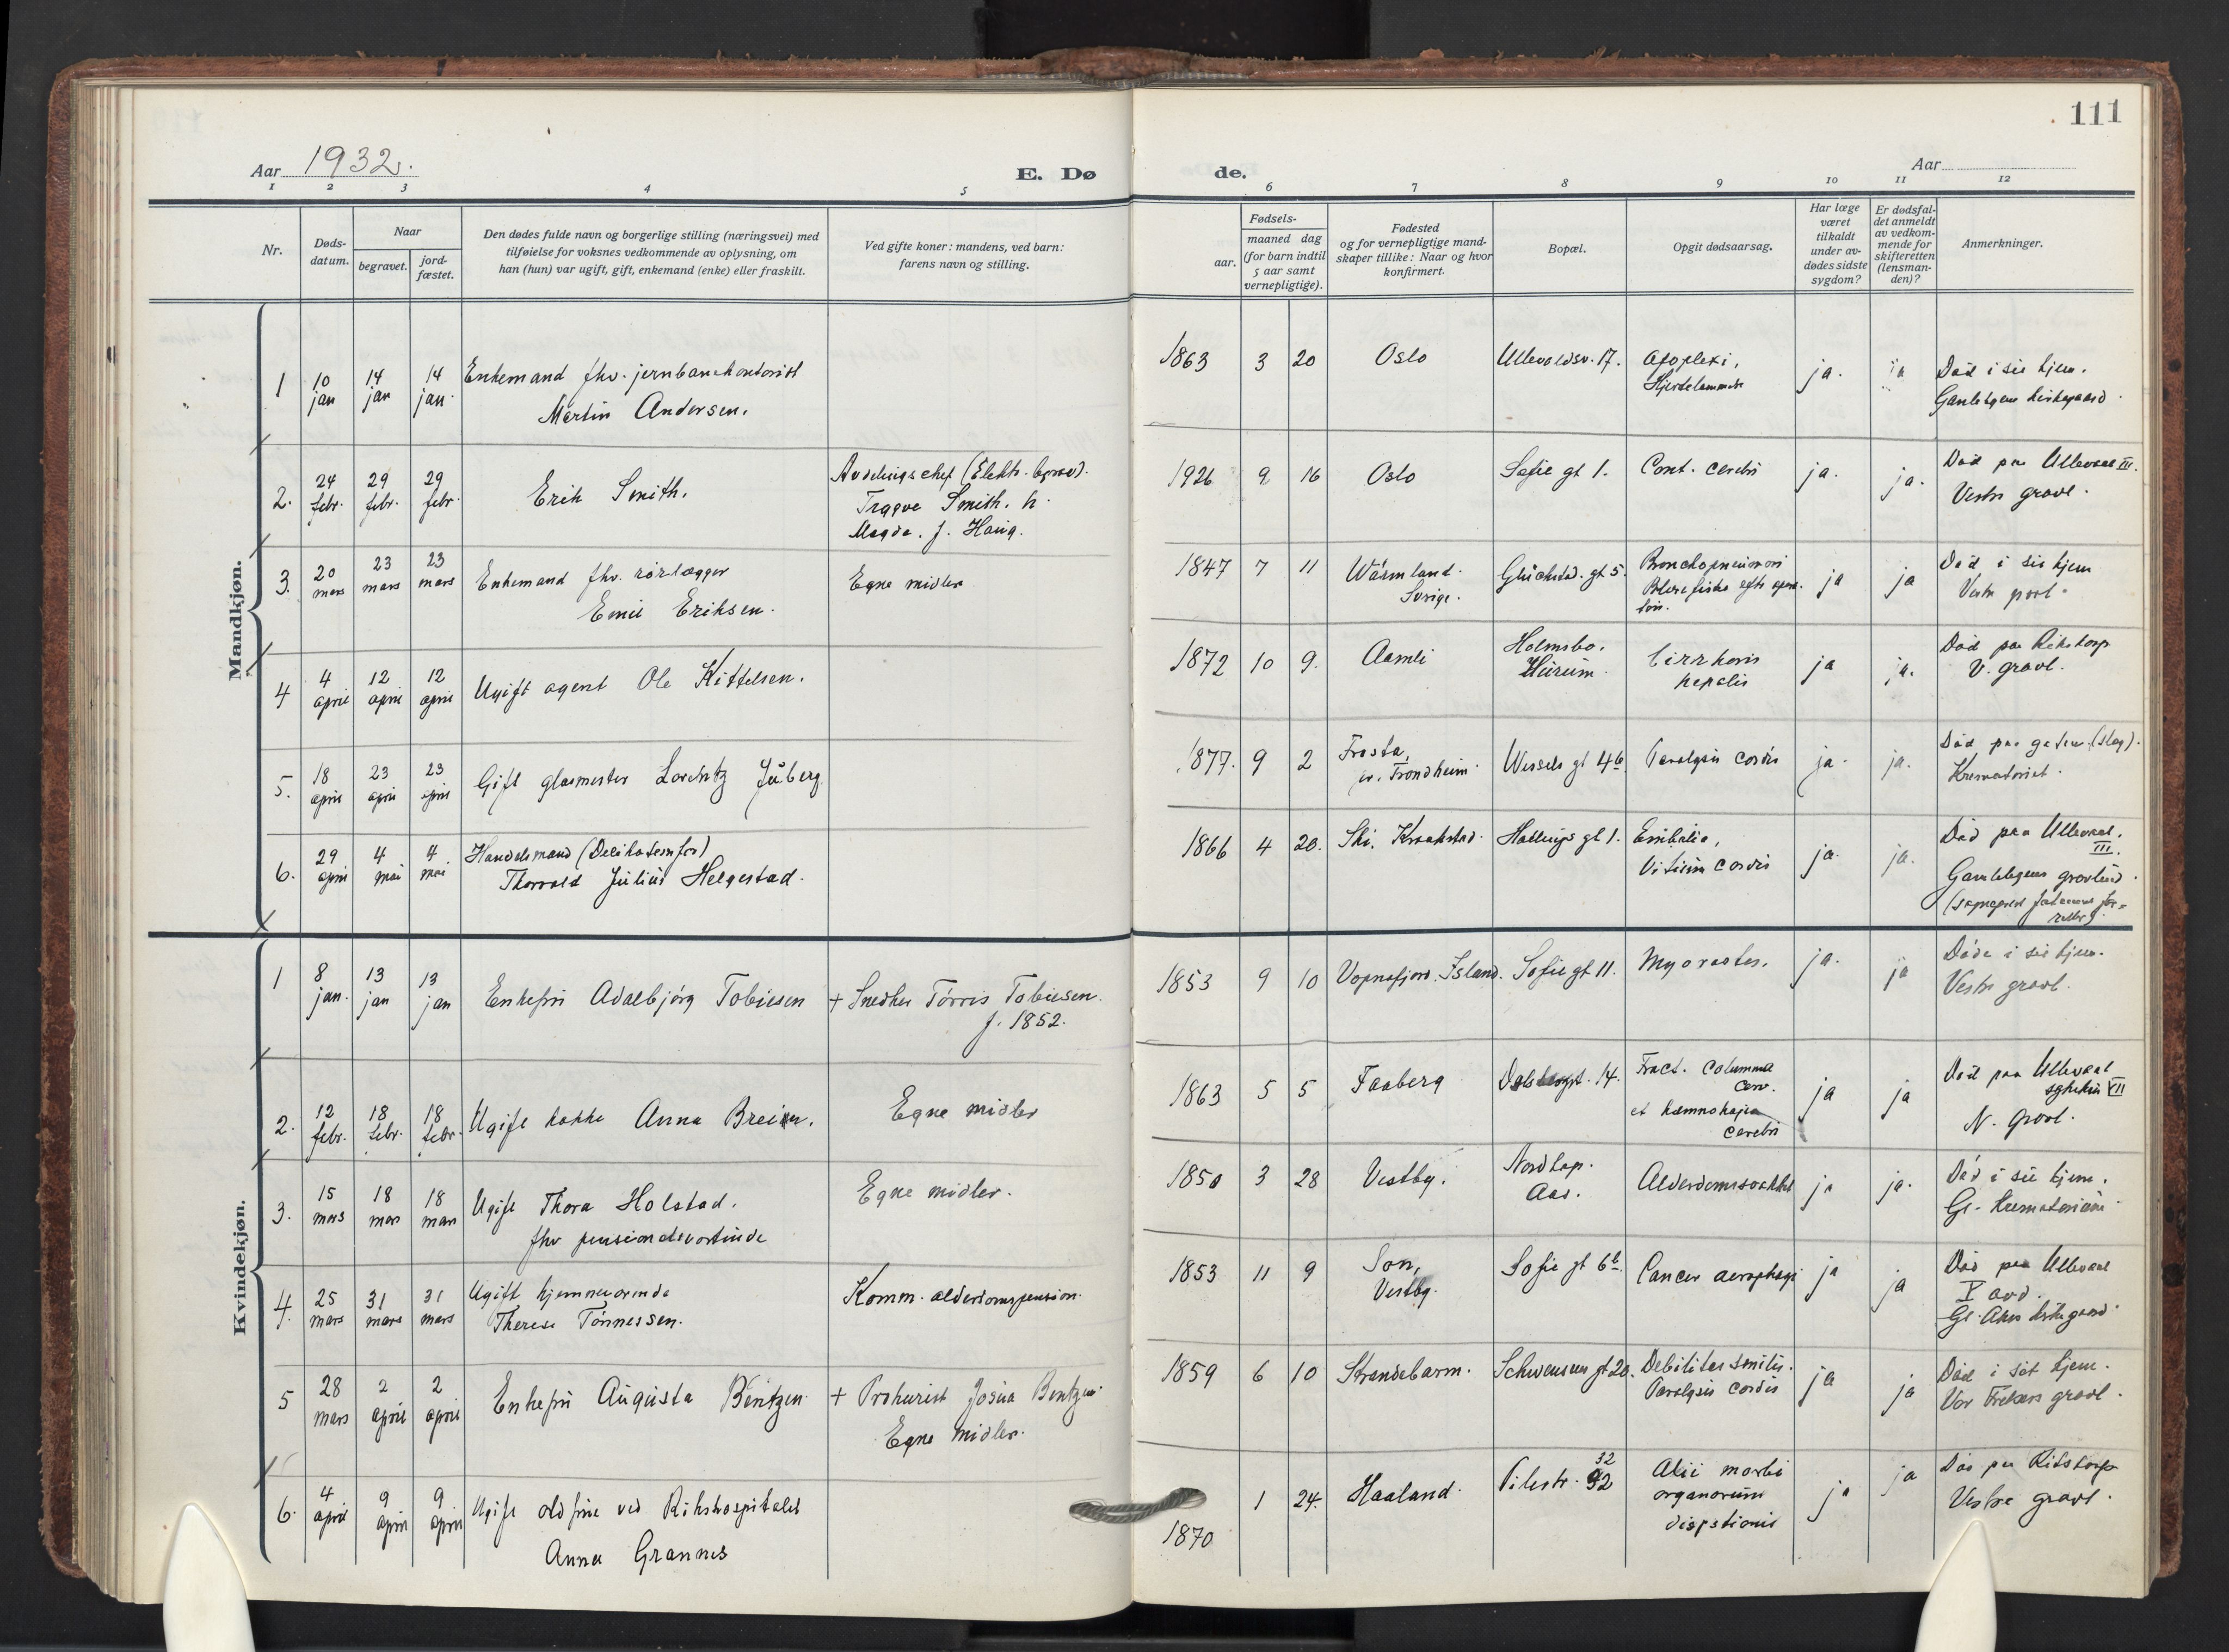 111
Aar 1932.
E. Dø
de.
Aar
1 2 3 4 5 6 7 8 9 10 11 12
Nr.
Døds-
datum.
Naar
begravet.
jord-
fæstet.
Den dødes fulde navn og borgerlige stilling (næringsvei) med
tilføielse for voksnes vedkommende av oplysning, om
han (hun) var ugift, gift, enkemand (enke) eller fraskilt.
Ved gifte koner: mandens, ved barn:
farens navn og stilling.
Fødsels-
aar.
maaned dag
(for barn indtil
5 aar samt
vernepligtige).
Fødested
og for vernepligtige mand-
skaper tillike: Naar og hvor
konfirmert.
Bopæl.
Opgit dødsaarsag.
Har læge
været
tilkaldt
under av-
dødes sidste
sygdom?
Er dødsfal-
det anmeldt
av vedkom-
mende for
skifteretten
(lensman-
den)?
Anmerkninger.
Mandkjøn.
1
10 jan
14 jan
14 jan.
Enkemand fhv. jernbanekontorist
Martin Andersen.
1863
3 20
Oslo
Ullevoldsv. 17.
Apoplexi,
Hjertelammelse
ja.
ja
Død i sit hjem.
Gamlebyens kirkegaard.
2.
24 febr.
29 febr.
29 febr.
Erik Smith.
Avdelingschef (Elektr.
Trygve Smith. h.
Magda. f. Haug.
1926
9 16
Oslo
Sofie gt 1.
Cont. cerebri
ja.
ja.
Død paa Ullevaal III.
Vestre gravl.
3.
20 mars
23 mars
23 mars
Enkemand fhv. rørlægger
Emil Eriksen.
Egne midler
1847
7 11
Wärmland.
Sverige.
Glückstad. gt 5.
Bronchopneumoni
Blærefistel efter opera-
tion.
ja
ja
Død i sit hjem
Vestre gravl.
4
4 april
12 april
12 april
Ugift agent Ole Kittelsen.
1872
10 9.
Aamli
Holmsbo.
Hurum.
Cirrhosis
hepatis
ja
ja.
Død paa Rikshosp
V. gravl.
5.
18 april
23 april
23 april
Gift glasmester Lorentz Juberg.
1877.
9 2
Frosta,
pr. Trondheim.
Wessels gt 4b
Paralysis cordis
ja.
ja.
Død paa gaten (slag).
Krematoriet.
6.
29 april
4 mai
4 mai
Handelsmand (Delikatessefor)
Thorvald Julius Helgestad.
1866
4 20.
Ski. Kraakstad.
Hallings gt 1.
Embolia,
Vitium cordis
ja.
ja.
Død paa Ullevaal.
III.
Gamlebyens gravlund.
Kvindekjøn.
1
8 jan.
13 jan
13 jan
Enkefru Adalbjörg Tobiesen
+ Snedker Tørris Tobiesen.
f. 1852.
1853
9 10
Vopnafjord. Island.
Sofie gt 11.
ja.
ja
Døde i sit hjem.
Vestre gravl.
2.
12 febr.
18 febr.
18 febr.
Ugift kokke Anna Breien.
Egne midler
1863
5 5
Faaberg
Dalsbergst. 14.
Fract. columna
cerv.
et hæmorhagia
cerebri
ja
ja
Død paa Ullevaal
sykehus VII
N. gravl.
3.
15 mars
18 mars
18 mars
Ugift Thora Holstad.
fhv pensionatsvertinde
Egne midler.
1850
3 28
Vestby.
Nordhap.
Aas.
Alderdomssvakhet
ja
ja.
Død i sit hjem.
Gl. Krematorium.
4.
25 mars
31 mars
31 mars
Ugift hjemmeværende
Therese Tønnessen.
Komm. alderdomspension.
1853
11 9
Son,
Vestby.
Sofie gt 6b.
Cancer aerophagi
ja
ja
Død paa Ullevaal
V avd.
Gl. Akers kirkegaard.
5
28 mars
2 april
2 april
Enkefru Augusta Bentzen
+ Prokurist Josua Bentzen.
Egne midler.
1859
6 10
Strandebarm.
Schwensens gt 20.
Debilitas senilis.
Paralysis cordis
ja
ja
Død i sit hjem.
Vor Frelsers gravl.
6.
4 april
9 april
9 april
Ugift oldfrue ved Rikshospitalet
Anna Grannes
1870
1 24.
Haaland.
Pilestr. 32
32
Alii morbi
organorum
digestionis
ja
ja
Død paa Rikshosp
Vestre gravl.